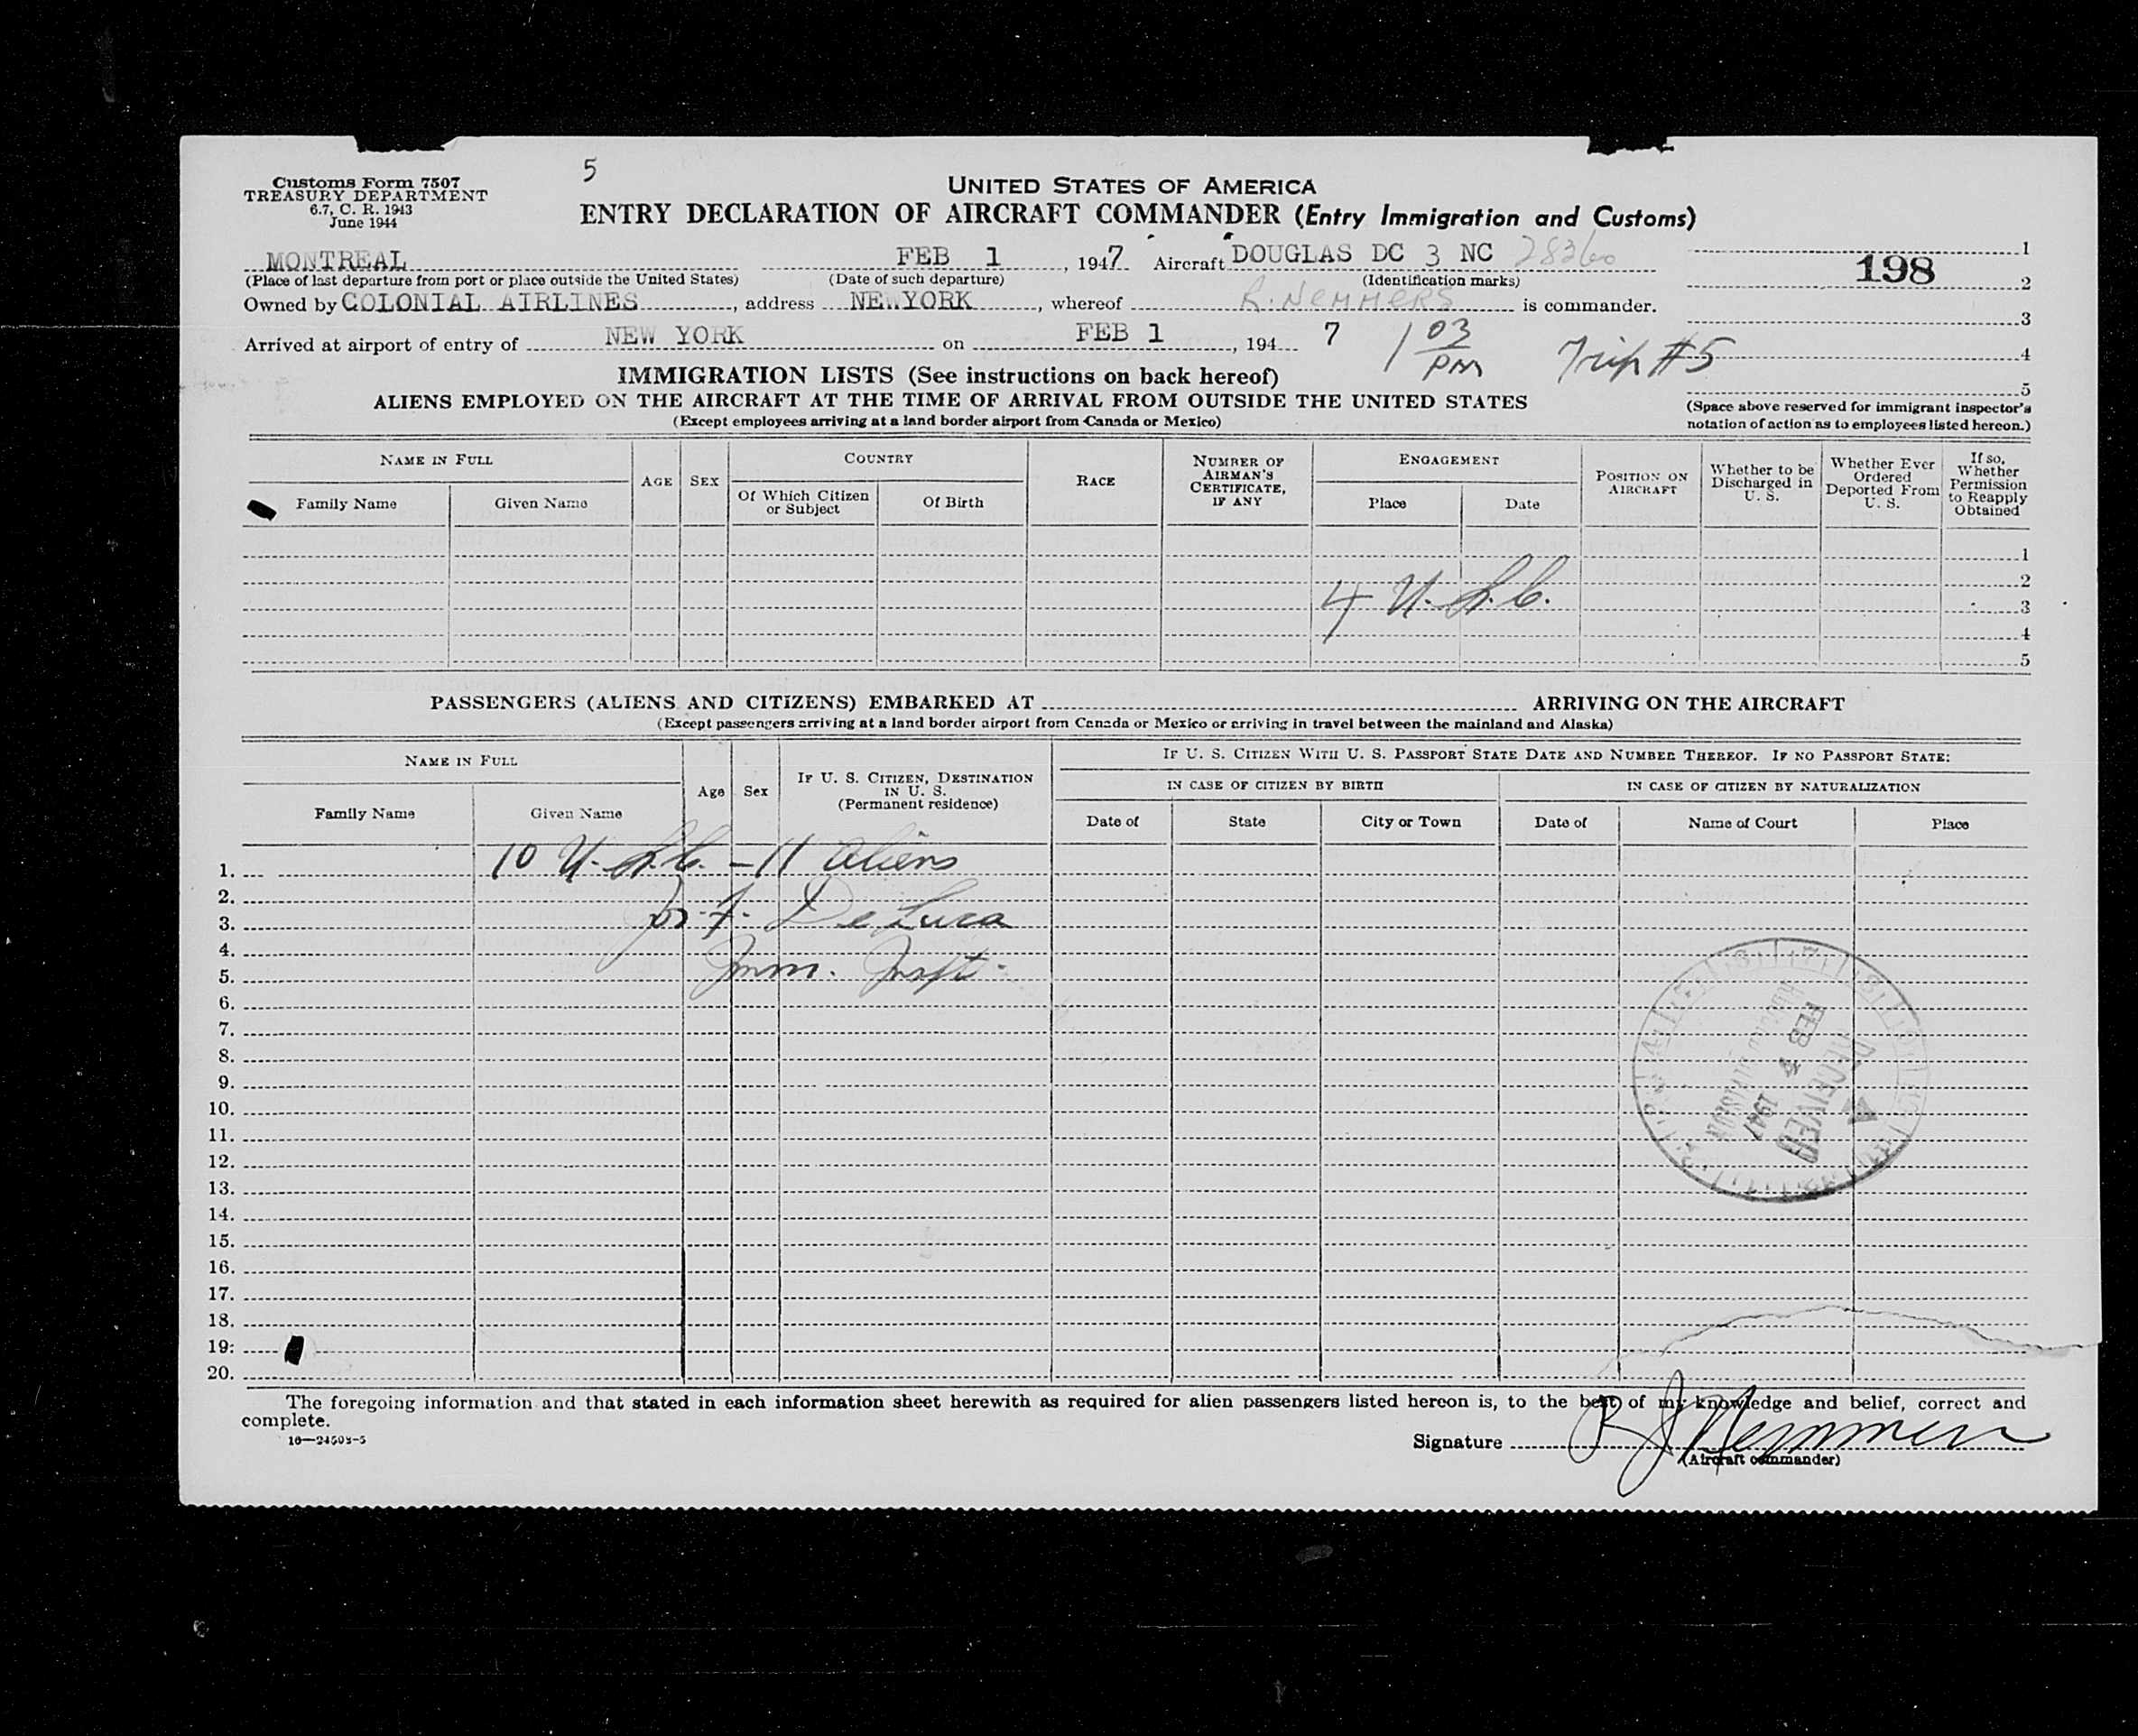 5
Customs Form 7507
TREASURY DEPARTMENT
6.7, C. R. 1943
June 1944
UNITED STATES OF AMERICA
ENTRY DECLARATION OF AIRCRAFT COMMANDER (Entry Immigration and Customs)
MONTREAL FEB 1, 1947 Aircraft DOUGLAS DC 3 NC 28360 1
(Place of last departure from port or place outside the United States) (Date of such departure) (Identification marks) 198 2
Owned by COLONIAL AIRLINES, address NEW YORK, whereof R. NEMMERS is commander.
3
Arrived at airport of entry of NEW YORK on FEB 1, 194 7 1 03 PM Trip #5 4
IMMIGRATION LISTS (See instructions on back hereof)
5
ALIENS EMPLOYED ON THE AIRCRAFT AT THE TIME OF ARRIVAL FROM OUTSIDE THE UNITED STATES
(Except employees arriving at a land border airport from Canada or Mexico)
(Space above reserved for immigrant inspector's
notation of action as to employees listed hereon.)
NAME IN FULL
Family Name Given Name
AGE SEX
COUNTRY
Of Which Citizen or Subject Of Birth
RACE
NUMBER OF AIRMAN'S CERTIFICATE, IF ANY
ENGAGEMENT
Place Date
POSITION ON AIRCRAFT
Whether to be Discharged in U. S.
Whether Ever Ordered Deported From U. S.
If so, Whether Permission to Reapply Obtained
1
2
4 U.S.C. 3
4
5
PASSENGERS (ALIENS AND CITIZENS) EMBARKED AT ARRIVING ON THE AIRCRAFT
(Except passengers arriving at a land border airport from Canada or Mexico or arriving in travel between the mainland and Alaska)
NAME IN FULL
Family Name Given Name
Age Sex
IF U. S. CITIZEN, DESTINATION IN U. S.
(Permanent residence)
IF U. S. CITIZEN WITH U. S. PASSPORT STATE DATE AND NUMBER THEREOF. IF NO PASSPORT STATE:
IN CASE OF CITIZEN BY BIRTH IN CASE OF CITIZEN BY NATURALIZATION
Date of State City or Town Date of Name of Court Place
1. 10 U.S.C. – 11 Aliens
2.
3. De Luca
4.
5. Imm. Inspt.
6.
7.
8.
9.
10.
11.
12.
13.
14.
15.
16.
17.
18.
19.
20.
RECEIVED
FEB 4 1947
The foregoing information and that stated in each information sheet herewith as required for alien passengers listed hereon is, to the best of my knowledge and belief, correct and
complete.
16—24503-5
Signature R J Nemmers
(Aircraft commander)